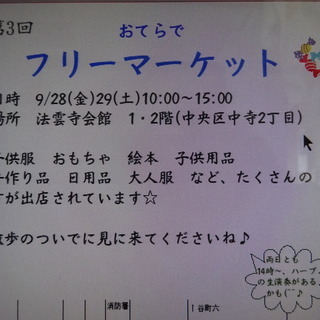 第3回
おてらで
フリーマーケット
日時 9/28(金)29(土)10:00～15:00
場所 法雲寺会館 1・2階(中央区中寺2丁目)
子供服 おもちゃ 絵本 子供用品
手作り品 日用品 大人服 など、たくさんの
方が出店されています☆
散歩のついでに見に来てくださいね♪
両日とも
14時～、ハープ
の生演奏がある
かも(⌒♪
消防署
谷町六